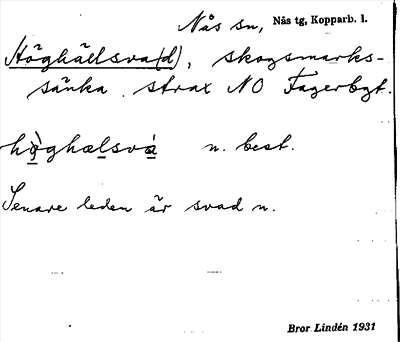 Nås sn, Nås tg, Kopparb. l.
Höghällsva(d), skogsmarks-
sänka strax NO Fagerbgt.
hò̱ghælsvá̱ n. best.
Senare leden är svad n.
Bror Lindén 1931